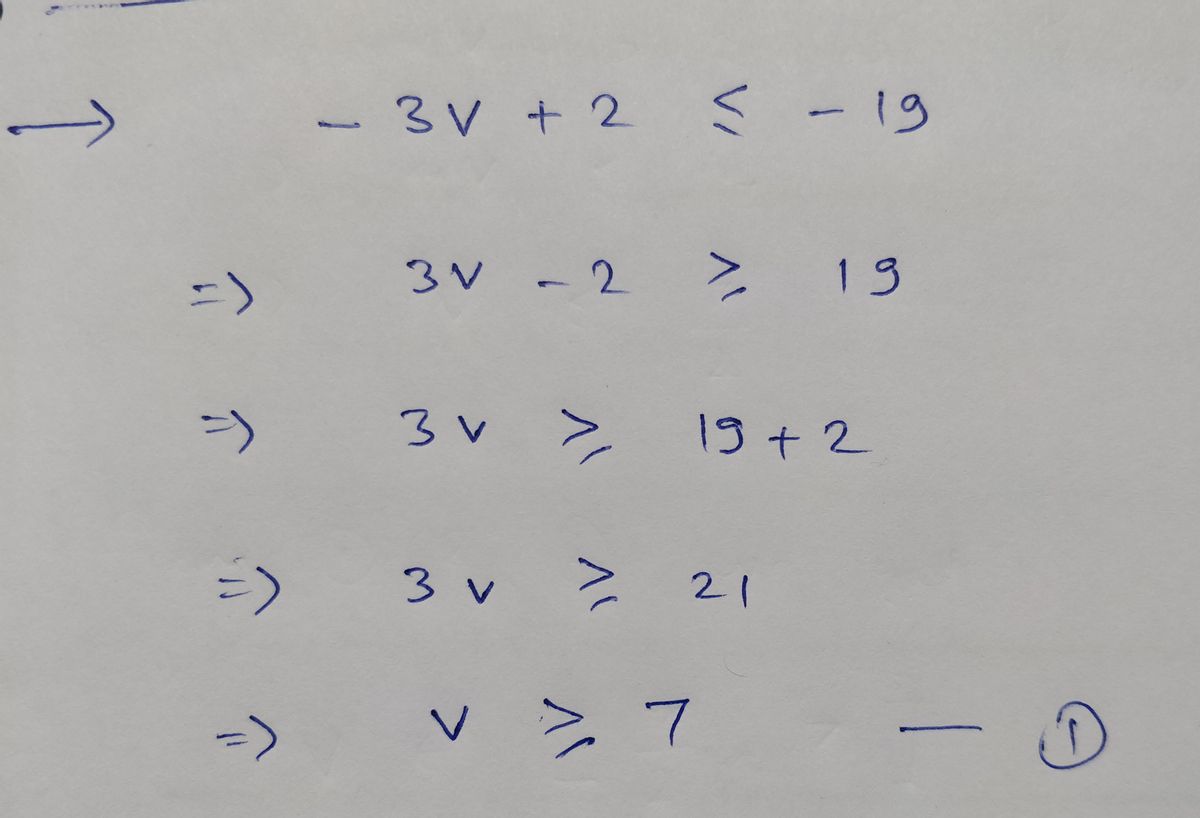 → - 3v + 2 ≤ - 19
=> 3v - 2 ≥ 19
=> 3v ≥ 19 + 2
=> 3v ≥ 21
=> v ≥ 7 — ①